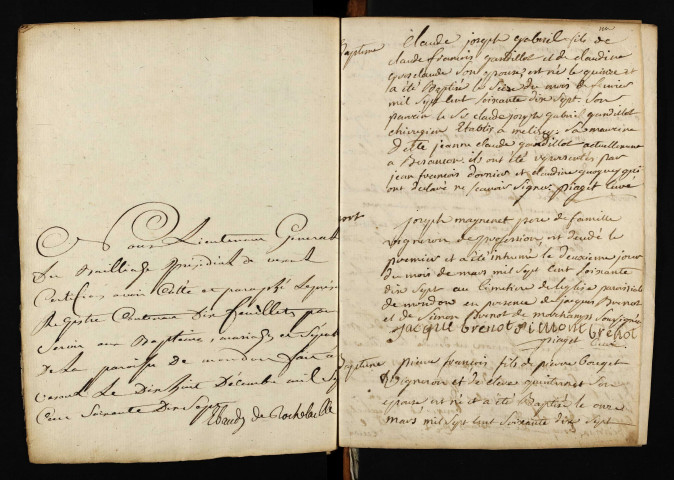 Nous Lieutenant General
Du Bailliage Presidial de vesoul
Certifions avoir Cotté et paraphé Le present
Registre Contenant Dix feuillets pour
servir aux Baptemes, mariages et Sepult
de La paroisse de mondon fait a
vesoul Le Dix Sept Décembre mil Sept
Cent Soixante Dix Sept
Ebaudy de Rochetaillé
Bapteme
Claude joseph gabriel fils de
claude françois gandillot et de claudine
son epouse est né le quinze et
a été Baptisé le Seize du mois de fevrier
mil Sept cent Soixante dix Sept Son
parrein le Sr claude joseph gabriel gandillot
chirurgien Etablis a Sa marreine
Delle jeanne claude gandillot actuellement
a Besancon ils ont été representés par
jean françois dornier et claudine
ont declaré ne Scavoir Signer piaget Curé
mort
joseph maynenet pere de famille
vigneron de profession, est decedé le
premier et a été inhumé le deuxieme jour
du mois de mars mil Sept cent Soixante
dix Sept au Cimetiere de l'eglise paroissiale
de mondon en presence de jacques Brenot
et de Simon Brenot de Soussignés
jacque brenot Simont brenot
piaget Curé
Bapteme
pierre françois fils de pierre
vigneron et de Son
epouse est né et a été Baptisé le onze
mars mil Sept cent Soixante dix Sept